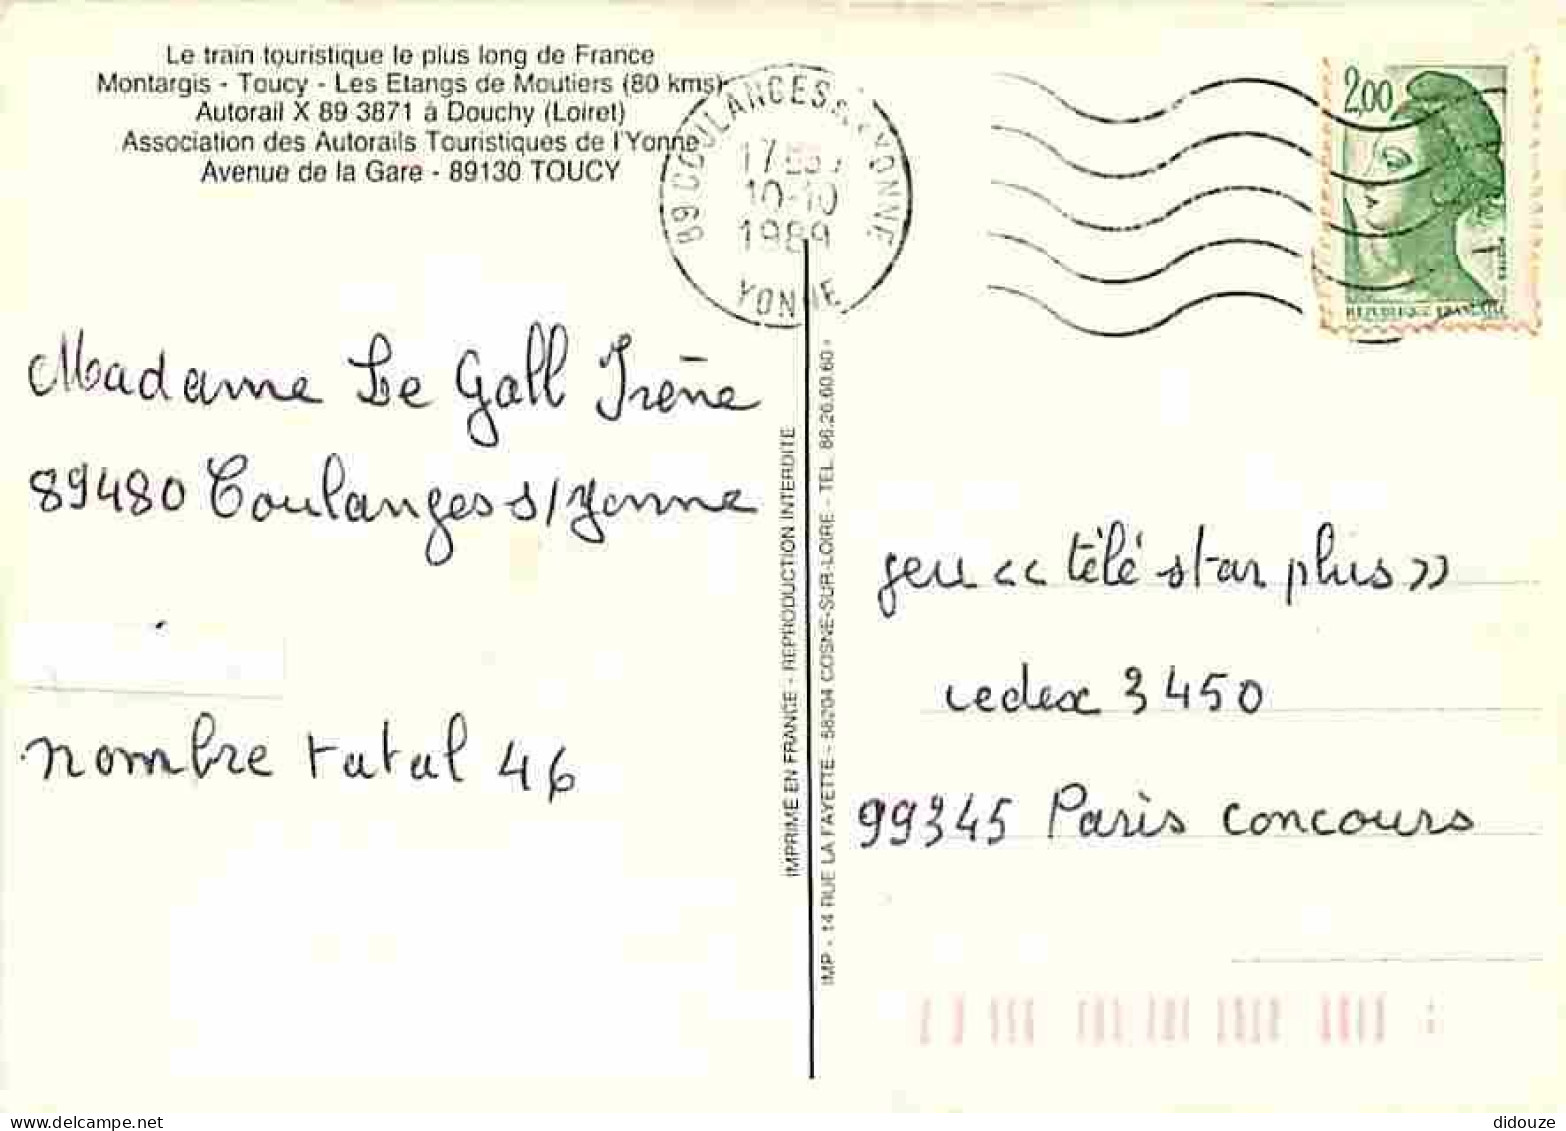 Le train touristique le plus long de France
Montargis - Toucy - Les Etangs de Moutiers (80 kms)
Autorail X 89 3871 à Douchy (Loiret)
Association des Autorails Touristiques de l'Yonne
Avenue de la Gare - 89130 TOUCY
89 COULANGES S/YONNE
17
10-10
1989
YONNE
2,00
REPUBLIQUE FRANÇAISE
Madame Le Gall Irène
89480 Coulanges s/Yonne
nombre total 46
IMPRIMÉ EN FRANCE - REPRODUCTION INTERDITE
IMP - 14 RUE LA FAYETTE - 58204 COSNE-SUR-LOIRE - TEL. 86.26.60.60
jeu << télé star plus >>
cedex 3450
99345 Paris concours
didouze